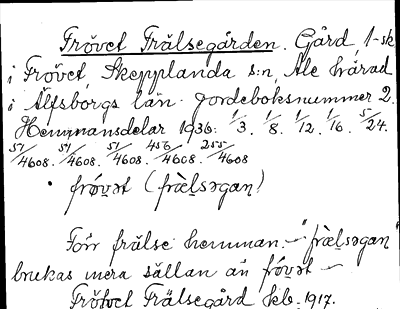 Frövet Frälsegården. Gård, 1-sk
i Frövet, Skepplanda s:n, Ale härad
i Älfsborgs län. Jordeboksnummer 2.
Hemmansdelar 1936: 1/3. 1/8. 1/12. 1/16. 5/24.
51/4608. 51/4608. 51/4608. 456/4608. 255/4608
frǿvət (frælsəgan)
Förr frälse hemman. – "frælsəgan"
brukas mera sällan än frǿvət –
Frötvet Frälsegård Kb. 1917.